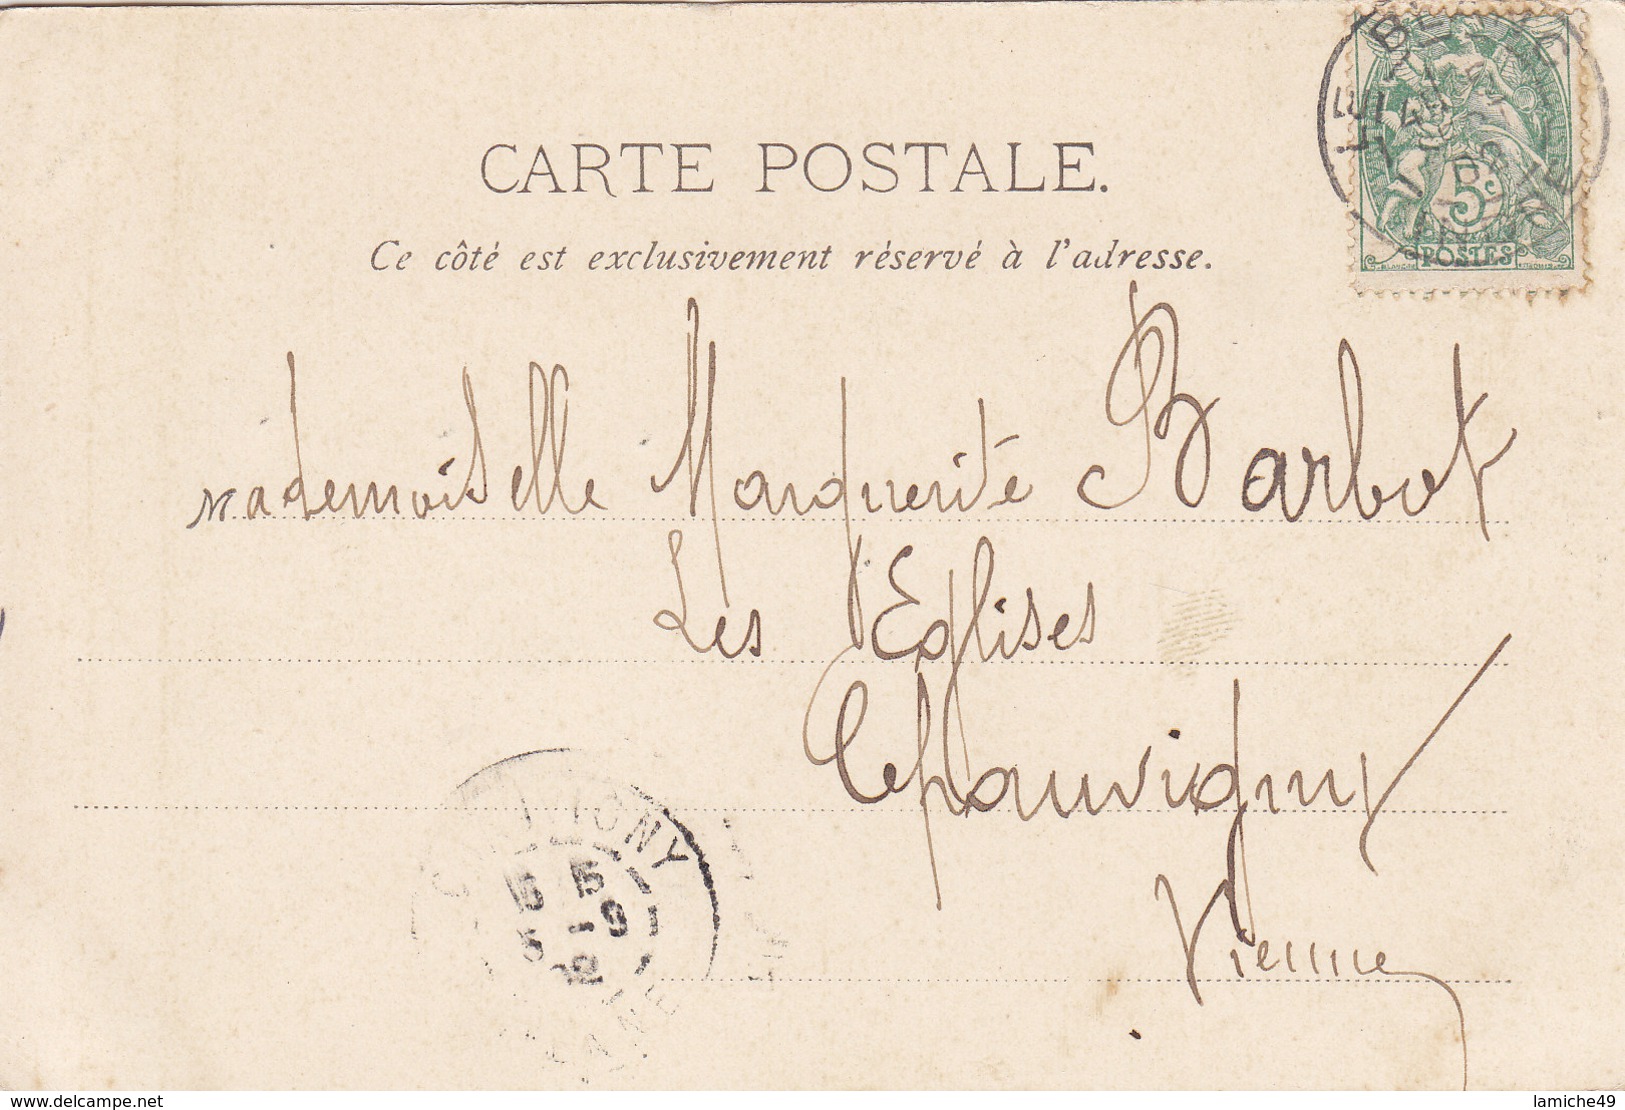 CARTE POSTALE.
Ce côté est exclusivement réservé à l'adresse.
5c
POSTES
Mademoiselle Marguerite Barbot
Les Eglises
Chauvigny
Vienne
CHAUVIGNY
15 5
5 -9
02
VIENNE
www.delcampe.net
lamiche49